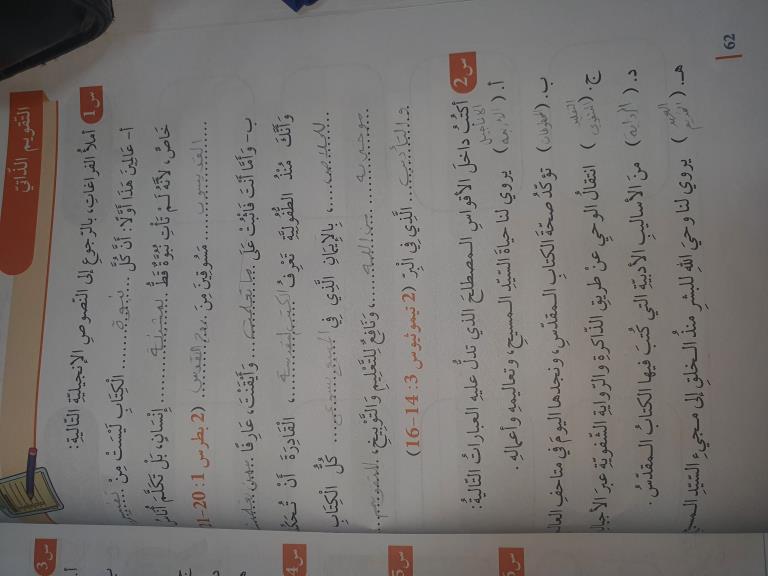 التقويم الذاتي
س1 أملأُ الفراغاتِ، بالرّجوعِ إلى النّصوصِ الإنجيليّةِ التّاليةِ:
أ- عَالِمِينَ هَذَا أَوَّلًا: أَنَّ كُلَّ ..نبوة.. الْكِتَابِ لَيْسَتْ مِنْ
خَاصٍّ، لأَنَّهُ لَمْ تَأْتِ نُبُوَّةٌ قَطُّ ..بمشيئة.. إِنْسَانٍ، بَلْ تَكَلَّمَ أُنَاسُ
..القديسون.. مَسُوقِينَ مِنَ ..الروح القدس.. (2 بطرس 1: 20-21
ب- وَأَمَّا أَنْتَ فَاثْبُتْ عَلَى ..ما تعلمت.. وَأَيْقَنْتَ، عَارِفًا ..ممن تعلمت
وَأَنَّكَ مُنْذُ الطُّفُولِيَّةِ تَعْرِفُ ..الكتب المقدسة..، الْقَادِرَةَ أَنْ تُحَكِّ
..للخلاص..، بِالإِيمَانِ الَّذِي فِي ..المسيح يسوع.. كُلُّ الْكِتَابِ
..موحى به.. ..من الله..، وَنَافِعٌ لِلتَّعْلِيمِ وَالتَّوْبِيخِ، ..للتقويم
..والتأديب.. الَّذِي فِي الْبِرِّ (2 تيموثيوس 3: 14-16)
س2 أكتُبُ داخلَ الأقواسِ المصطلحَ الذي تدلُّ عليه العباراتُ التّاليةُ:
أ. (الأناجيل الأربعة) يروي لنا حياةَ السّيّدِ المسيحِ، وتعاليمِهِ وأعمالِهِ.
ب. (مخطوطات) تؤكّدُ صحّةَ الكتابِ المقدّسِ، ونجدها اليومَ في متاحفِ العال
ج. (التقليد الشفوي) انتقالُ الوحي عنْ طريقِ الذّاكرةِ والرّوايةِ الشّفويّةِ عبرَ الأجيال
د. (الرواية) منَ الأساليبِ الأدبيّةِ التي كُتبَ فيها الكتابُ المقدّسُ.
هـ. (العهد القديم) يروي لنا وحيَ اللهِ للبشرِ منذُ الخلقِ إلى مجيءِ السّيّدِ المسي
62
س3
أ.
ب
ج
د
هـ
س4
س5
س6